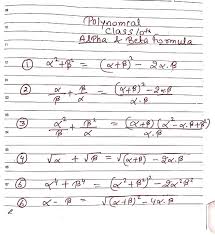 Polynomial
Class 10th
Alpha & Beta Formula
① α²+β² = (α+β)² - 2α.β
② α/β + β/α = (α+β)² - 2α.β / α.β
③ α²/β + β²/α = (α+β)(α²-α.β+β²) / α.β
④ √α + √β = √(α+β) - 2α.β
⑤ α⁴ + β⁴ = (α²+β²)² - 2α²β²
⑥ α - β = √(α+β)² - 4α.β